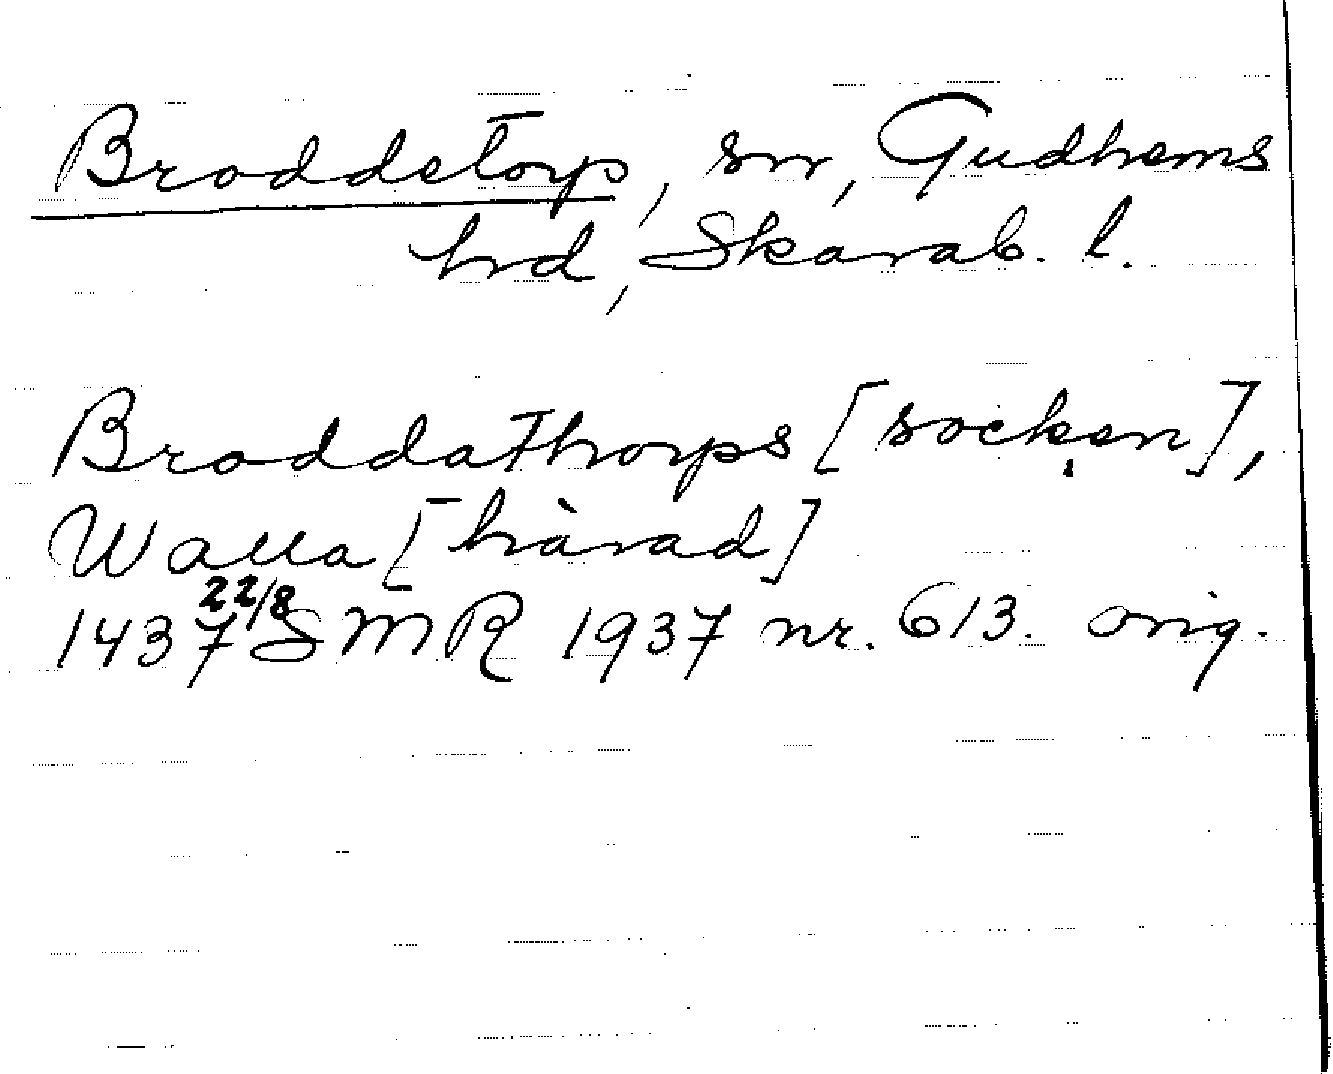 Broddetorp, sn, Gudhems
hrd, Skarab. l.
Broddathorps [socken],
Walla [härad]
1437 22/8 SMR 1937 nr. 613. orig.